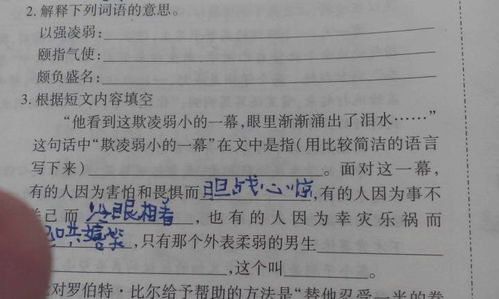 2. 解释下列词语的意思。
以强凌弱:
颐指气使:
颇负盛名:
3. 根据短文内容填空
“他看到这欺凌弱小的一幕,眼里渐渐涌出了泪水……”
这句话中“欺凌弱小的一幕”在文中是指(用比较简洁的语言
写下来) 。面对这一幕,
有的人因为害怕和畏惧而胆战心惊,有的人因为事不
己而冷眼相看,也有的人因为幸灾乐祸而
嘻笑,只有那个外表柔弱的男生
,这个叫 。
对罗伯特·比尔给予帮助的方法是“替他忍受一半的拳